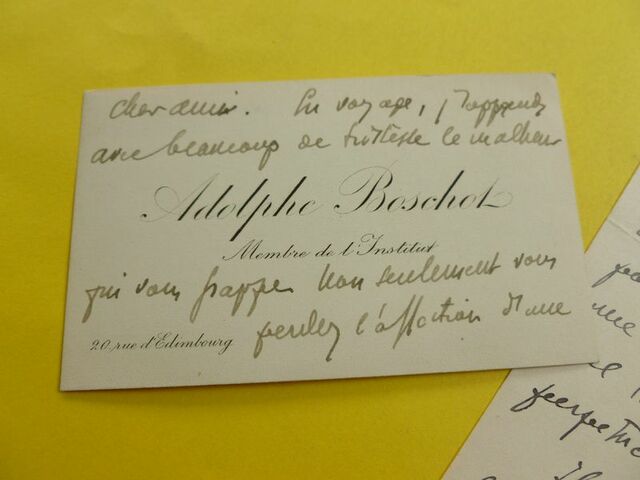 cher ami. En voyage, j'apprends
avec beaucoup de tristesse le malheur
Adolphe Boschot
Membre de l'Institut
qui vous frappe. Non seulement vous
perdez l'affection d'une
20, rue d'Edimbourg
une